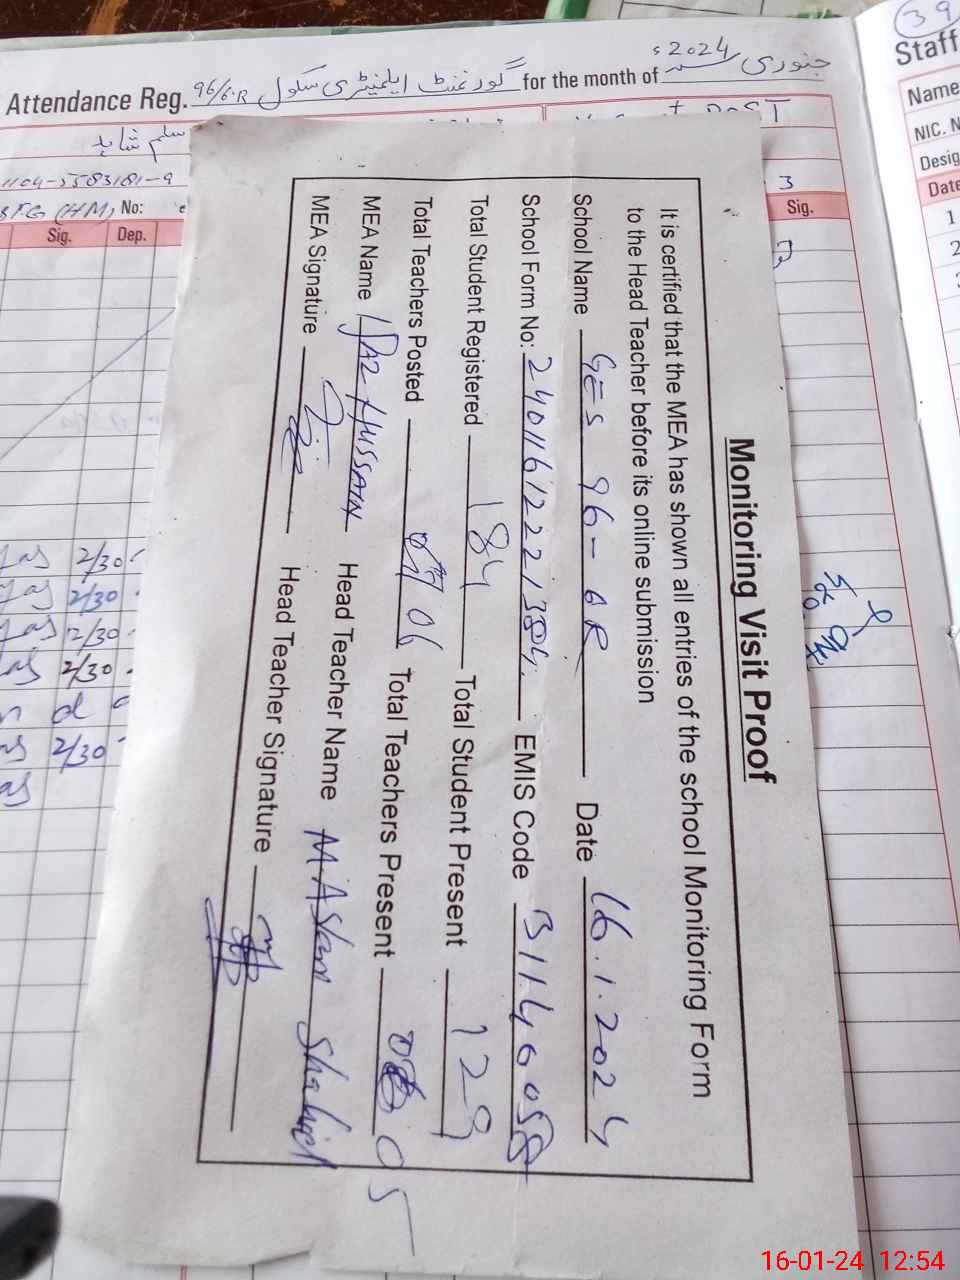 39
Attendance Reg. 96/6.R گورنمنٹ ایلیمنٹری سکول for the month of جنوری 2024ء
Staff
Name
NIC. N
Desig
Date
1
2
No:
Sig. Dep.
3
Sig.
Monitoring Visit Proof
It is certified that the MEA has shown all entries of the school Monitoring Form
to the Head Teacher before its online submission
School Name GES 96-6R Date 16.1.2024
School Form No: EMIS Code 31140058
Total Student Registered 184 Total Student Present 129
Total Teachers Posted 06 Total Teachers Present 05
MEA Name IJAZ HUSSAIN Head Teacher Name M Aslam Shahid
MEA Signature Head Teacher Signature
2/30
2/30
2/30
2/30
2/30
16-01-24 12:54